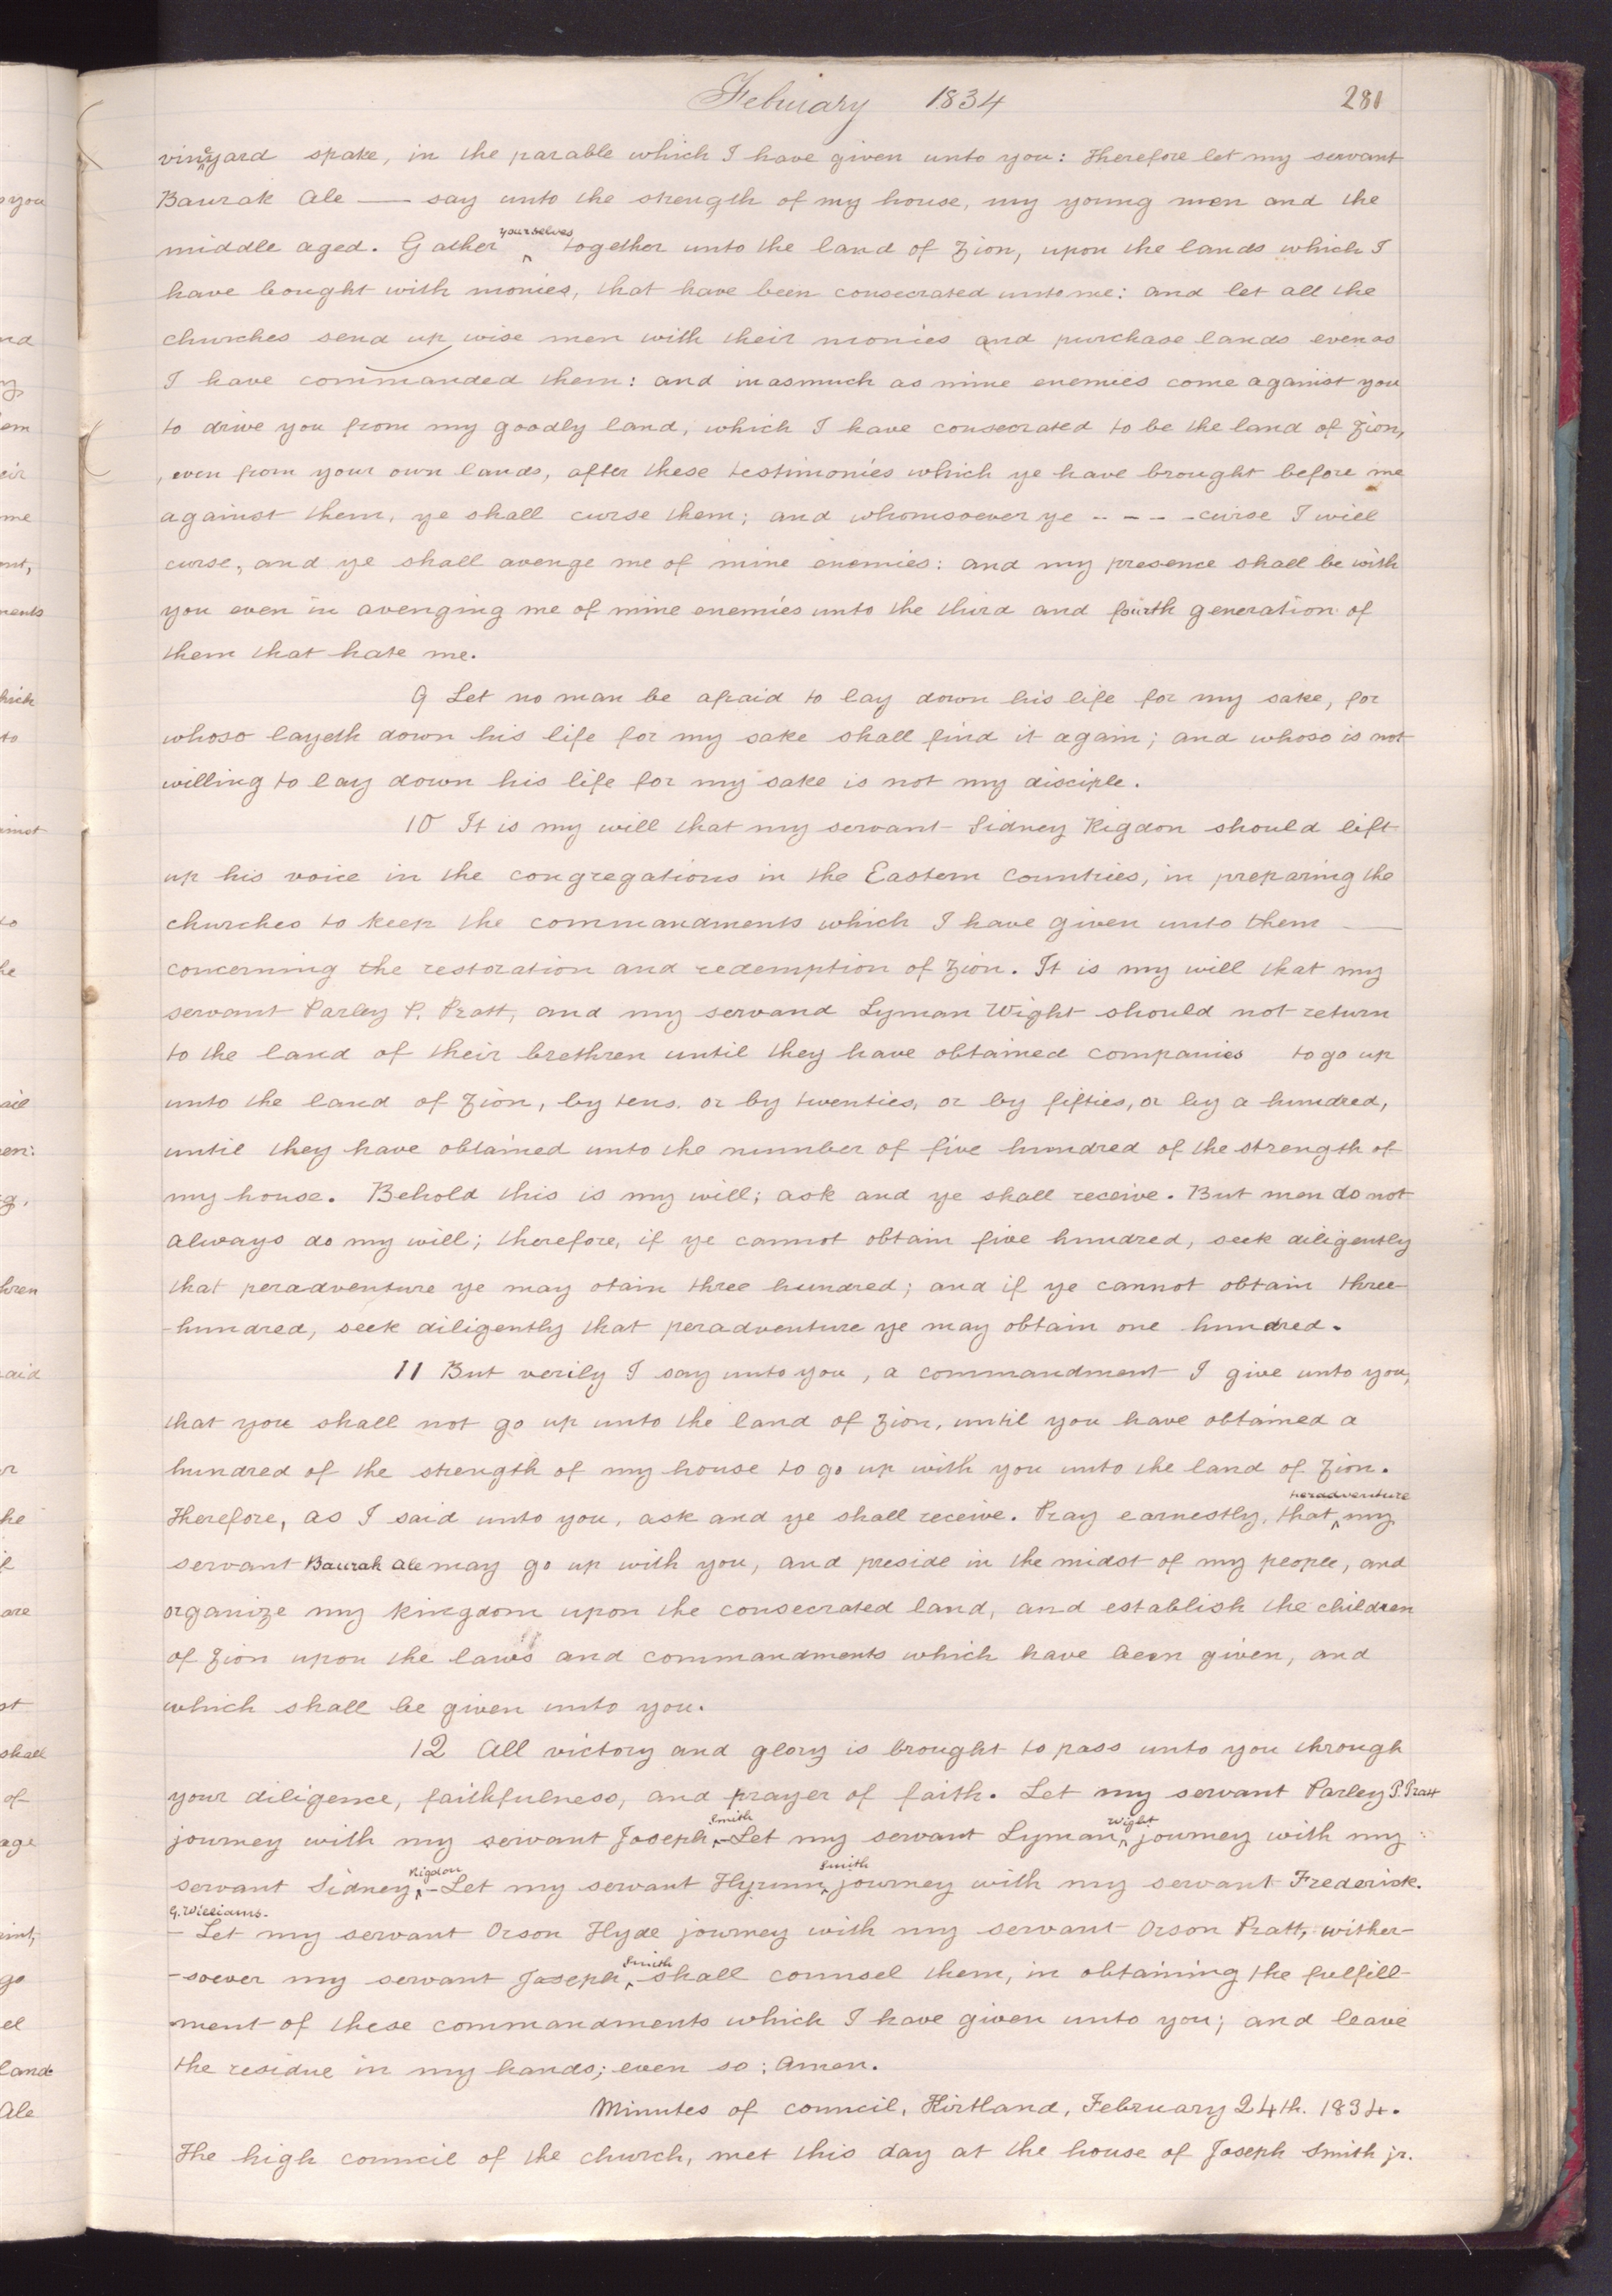 February 1834 281
vineyard spake, in the parable which I have given unto you: Therefore let my servant
Baurak Ale — say unto the strength of my house, my young men and the
middle aged. Gather yourselves together unto the land of Zion, upon the lands which I
have bought with monies, that have been consecrated unto me: and let all the
churches send up wise men with their monies and purchase lands even as
I have commanded them: and inasmuch as mine enemies come against you
to drive you from my goodly land, which I have consecrated to be the land of Zion,
, even from your own lands, after these testimonies which ye have brought before me
against them, ye shall curse them; and whomsoever ye - - - - curse I will
curse, and ye shall avenge me of mine enemies: and my presence shall be with
you even in avenging me of mine enemies unto the third and fourth generation of
them that hate me.
9 Let no man be afraid to lay down his life for my sake, for
whoso layeth down his life for my sake shall find it again; and whoso is not
willing to lay down his life for my sake is not my disciple.
10 It is my will that my servant Sidney Rigdon should lift
up his voice in the congregations in the Eastern Countries, in preparing the
churches to keep the commandments which I have given unto them —
concerning the restoration and redemption of Zion. It is my will that my
servant Parley P. Pratt, and my servand Lyman Wight should not return
to the land of their brethren until they have obtained companies to go up
unto the land of Zion, by tens. or by twenties, or by fifties, or by a hundred,
until they have obtained unto the number of five hundred of the strength of
my house. Behold this is my will; ask and ye shall receive. But men do not
always do my will; therefore, if ye cannot obtain five hundred, seek diligently
that peradventure ye may otain three hundred; and if ye cannot obtain three
-hundred, seek diligently that peradventure ye may obtain one hundred.
11 But verily I say unto you, a commandment I give unto you,
that you shall not go up unto the land of Zion, until you have obtained a
hundred of the strength of my house to go up with you unto the land of Zion.
Therefore, as I said unto you, ask and ye shall receive. Pray earnestly, that peradventure my
servant Baurak Ale may go up with you, and preside in the midst of my people, and
organize my kingdom upon the consecrated land, and establish the children
of Zion upon the laws and commandments which have been given, and
which shall be given unto you.
12 All victory and glory is brought to pass unto you through
your diligence, faithfulness, and prayer of faith. Let my servant Parley P. Pratt
journey with my servant Joseph Smith - Let my servant Lyman Wight journey with my
servant Sidney Rigdon - Let my servant Hyrum Smith journey with my servant Frederick.
G. Williams-
- Let my servant Orson Hyde journey with my servant Orson Pratt, wither-
-soever my servant Joseph Smith shall counsel them, in obtaining the fulfill-
ment of these commandments which I have given unto you; and leave
the residue in my hands; even so: Amen.
Minutes of council, Kirtland, February 24th. 1834.
The high council of the church, met this day at the house of Joseph Smith jr.